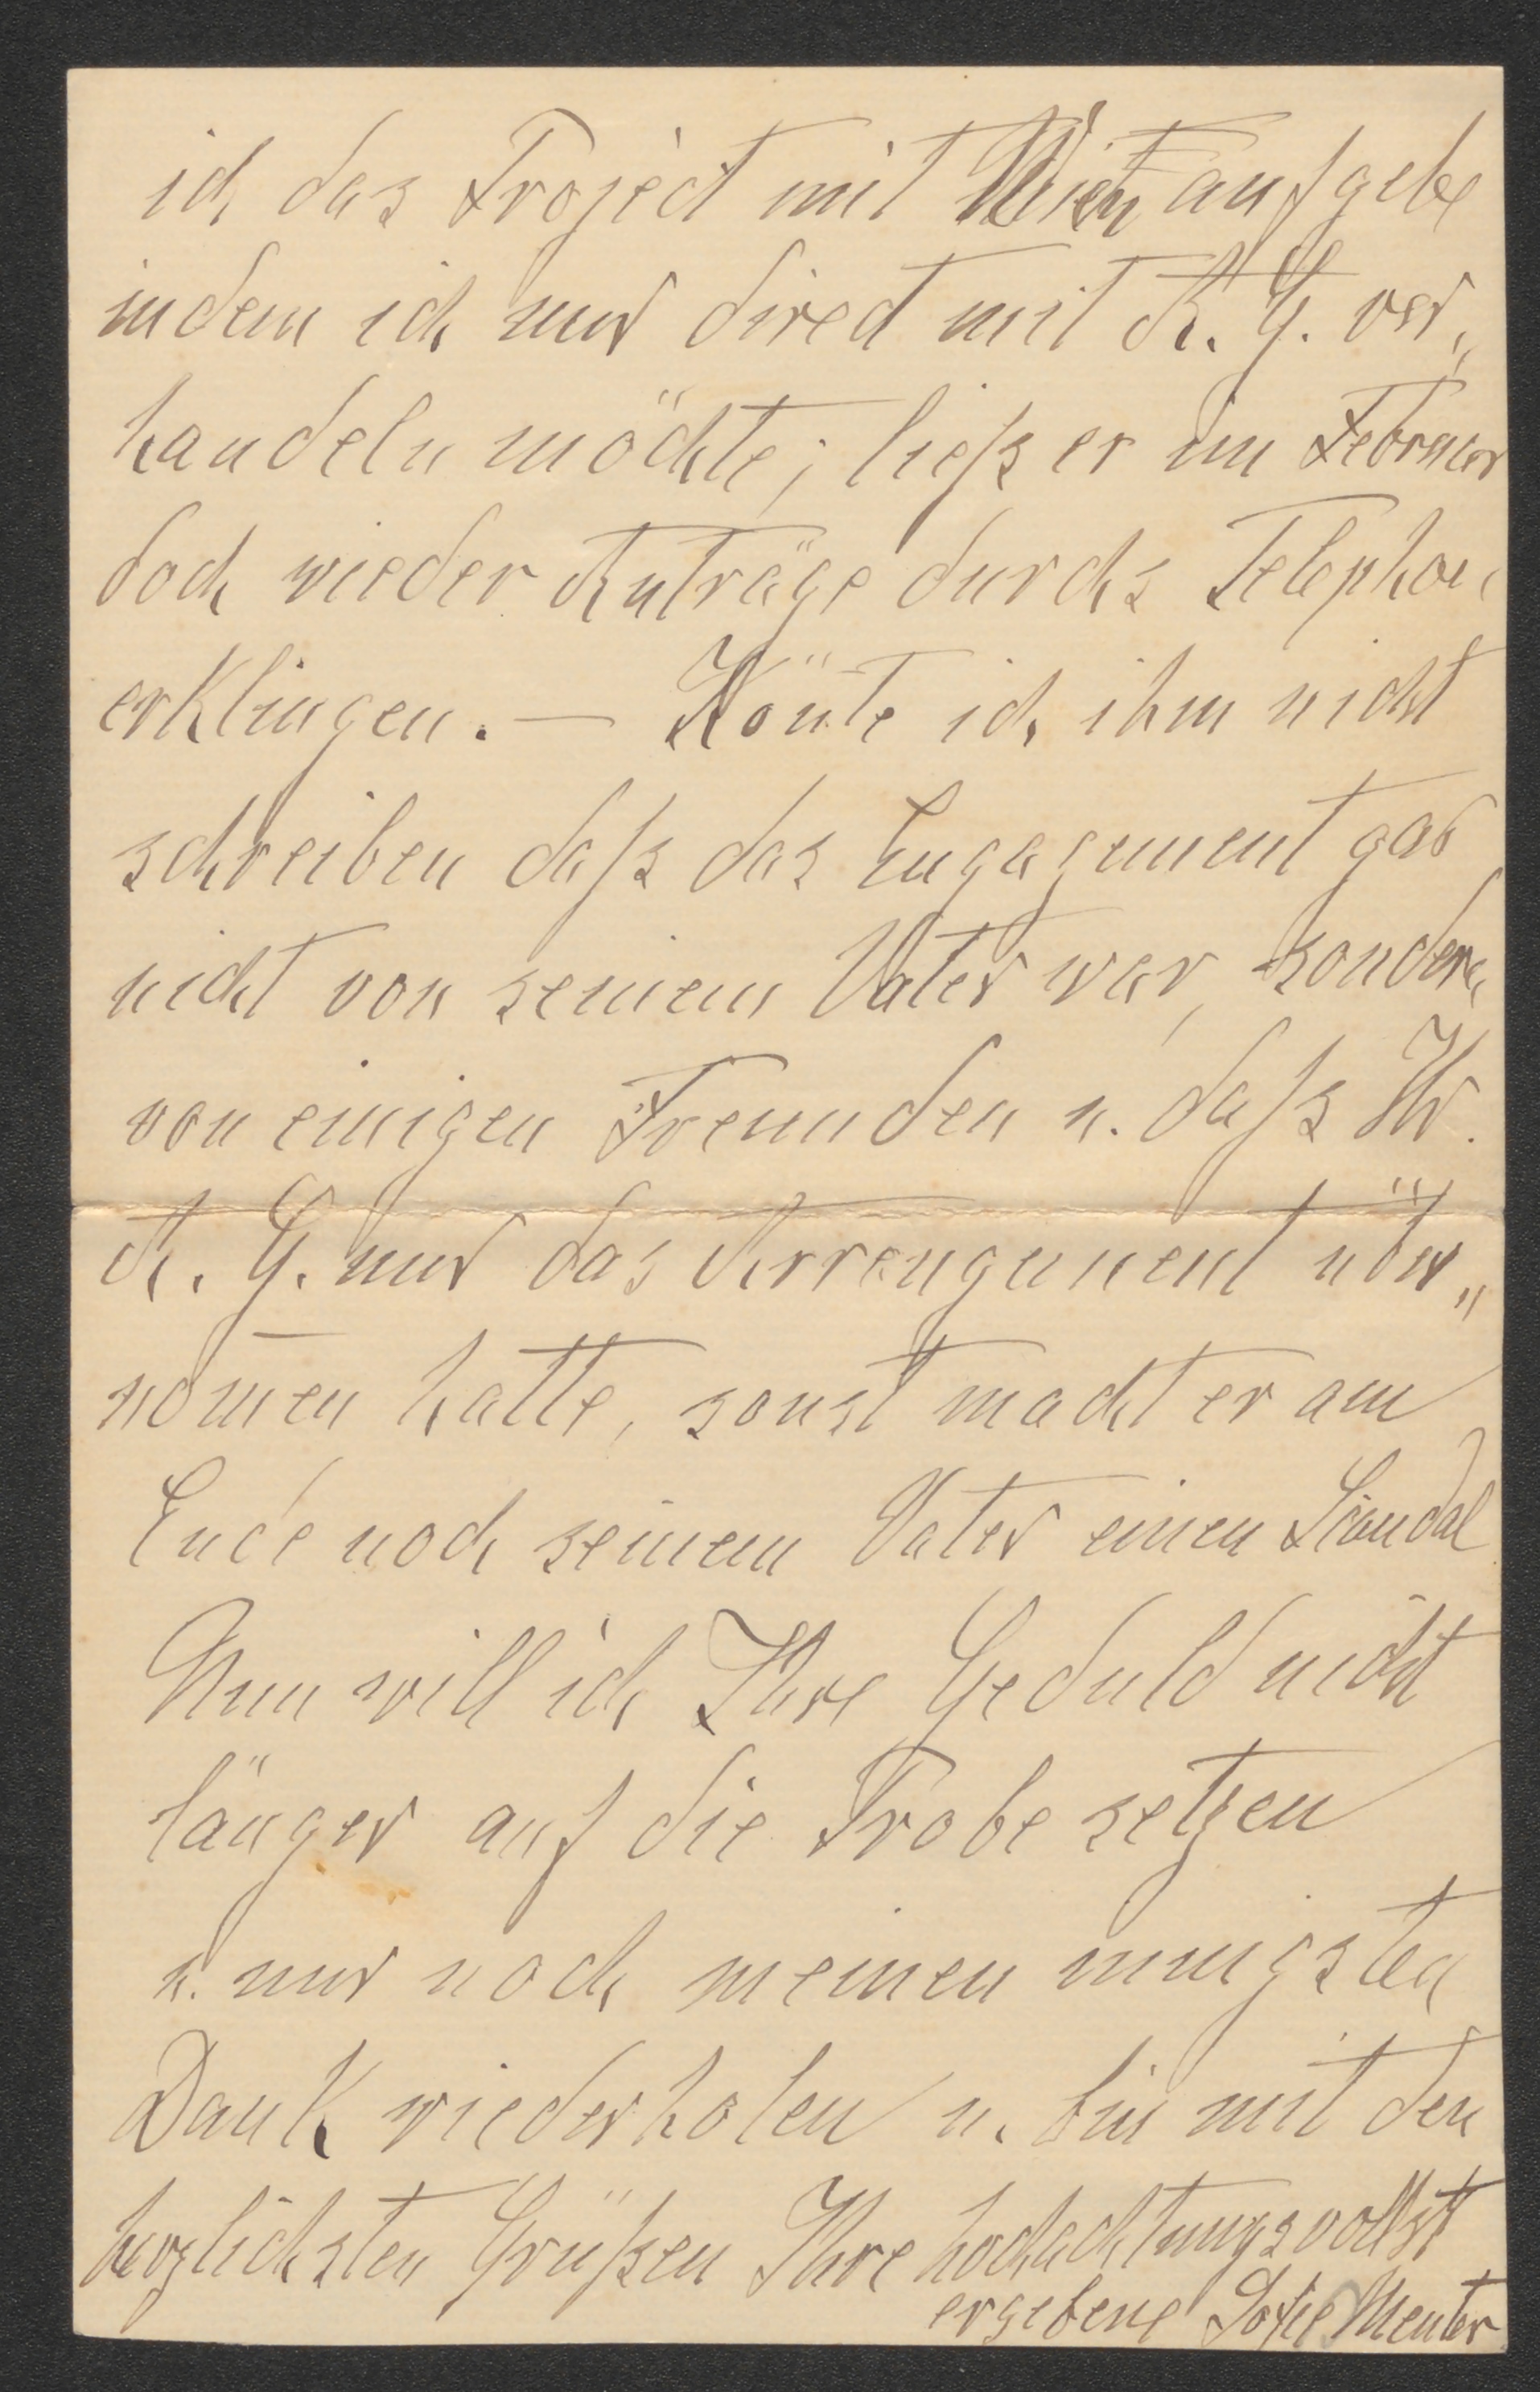 ich das Project mit Wien aufgebe
indem ich nur direct mit A. G. ver„
handeln möchte; ließ er im Februar
doch wieder Anträge durchs Telephon
erklingen. — Könte ich ihm nicht
schreiben daß das Engagement gar
nicht von seinem Vater war, sondern
von einigen Freunden u. daß Hr.
A. G. nur das Arrengement über„
nom̄en hatte, sonst macht er am
Ende noch seinem Vater einen Scandal
Nun will ich Ihre Geduld nicht
länger auf die Probe setzen
u. nur noch meinen innigsten
Dank wiederholen u. bin mit den
herzlichsten Grüßen Ihre hochachtungsvollst
ergebene Sofie Menter